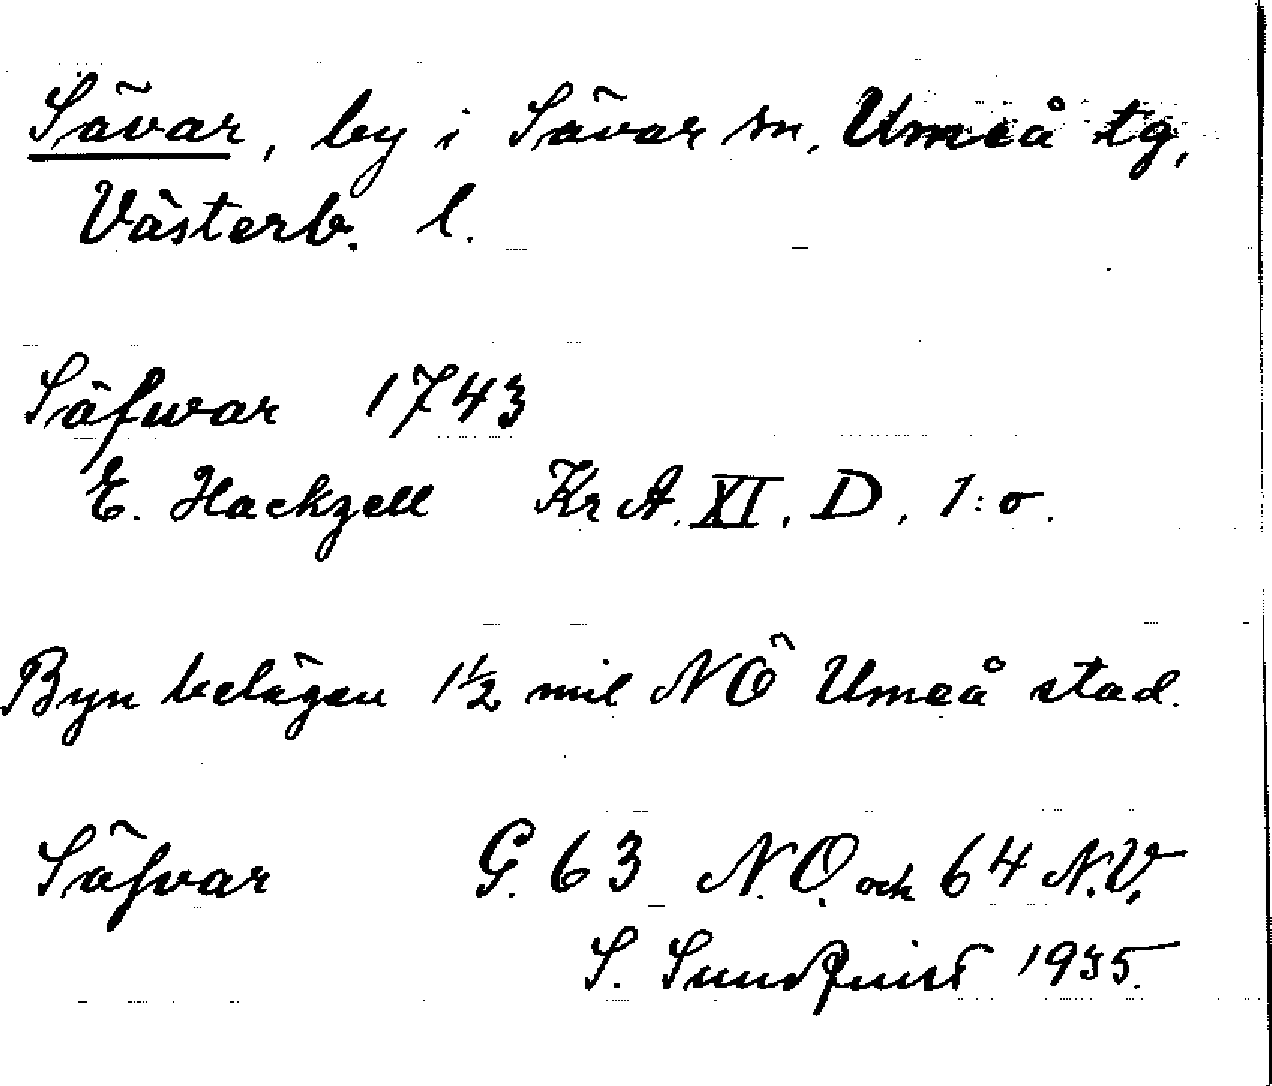 Sävar, by i Sävar sn, Umeå tg,
Västerb. l.
Säfwar 1743
E. Hackzell Kr A. XI. D. 1:o.
Byn belägen 1½ mil NÖ Umeå stad.
Säfvar G. 63 N.O. och 64 N.V.
S. Sundqvist 1935.